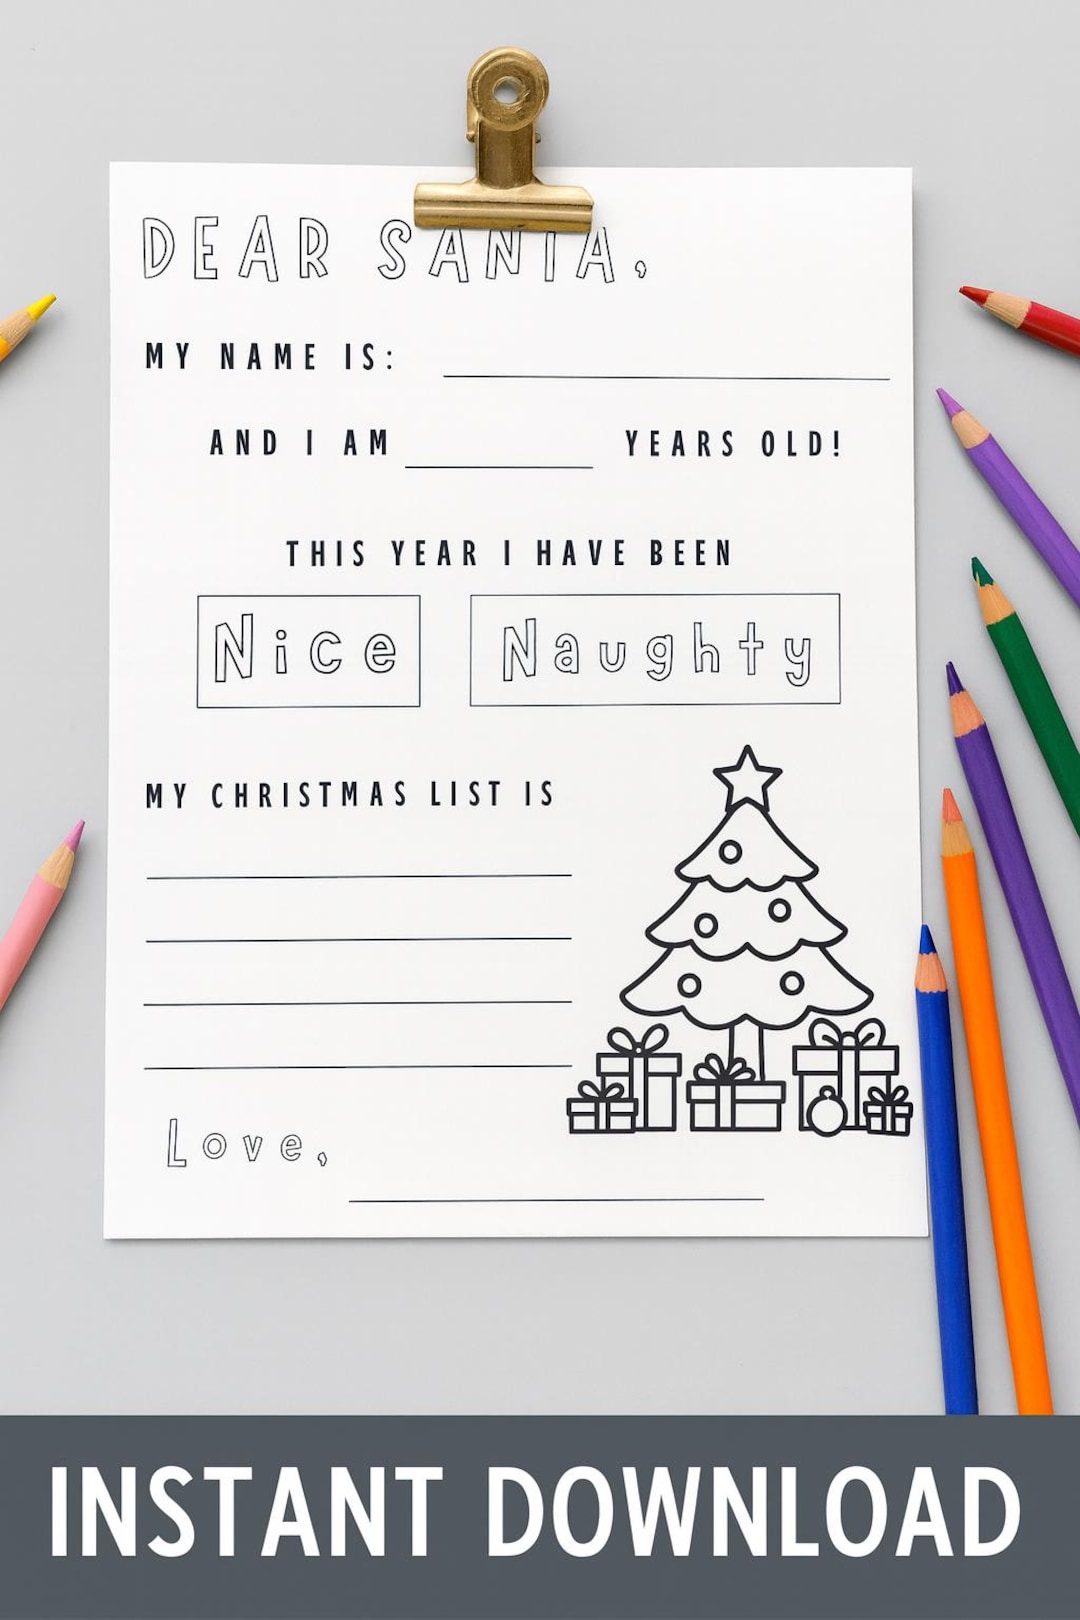 DEAR SANTA,
MY NAME IS:
AND I AM YEARS OLD!
THIS YEAR I HAVE BEEN
Nice Naughty
MY CHRISTMAS LIST IS
Love,
INSTANT DOWNLOAD